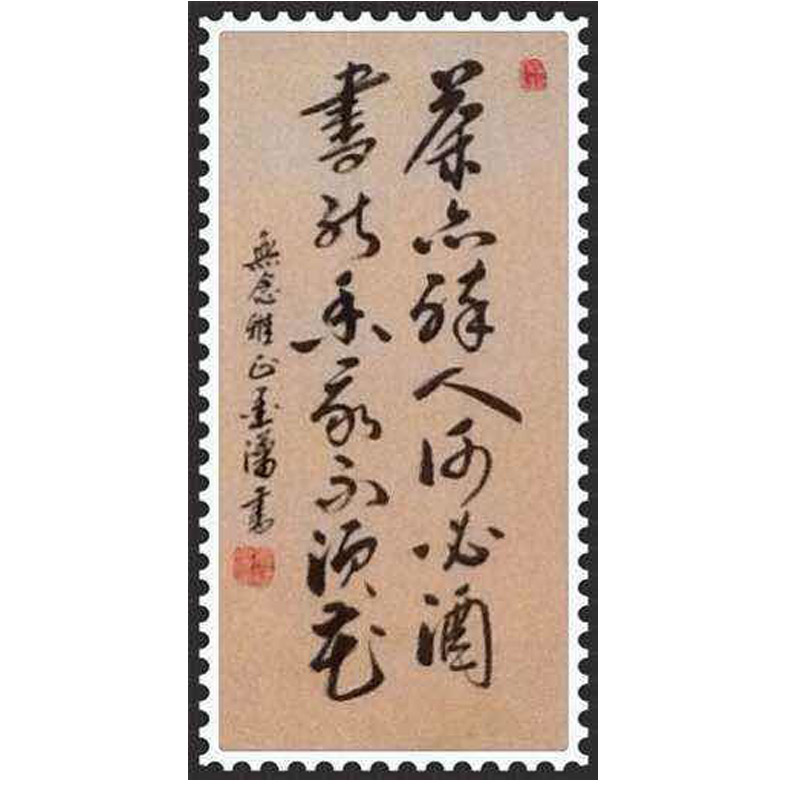 茶亦醉人何必酒
書能香我不須花
無念雅正墨書